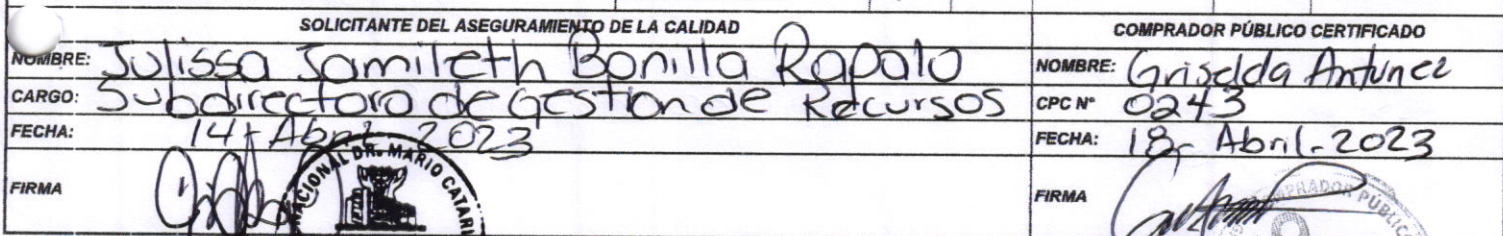 SOLICITANTE DEL ASEGURAMIENTO DE LA CALIDAD
NOMBRE: Julissa Jamileth Bonilla Rapalo
CARGO: Subdirectora de Gestion de Recursos
FECHA: 14- Abril 2023
FIRMA
NACIONAL DR. MARIO CATARI
COMPRADOR PÚBLICO CERTIFICADO
NOMBRE: Griselda Antunez
CPC N° 0243
FECHA: 18- Abril-2023
FIRMA
COMPRADOR PÚBLICO